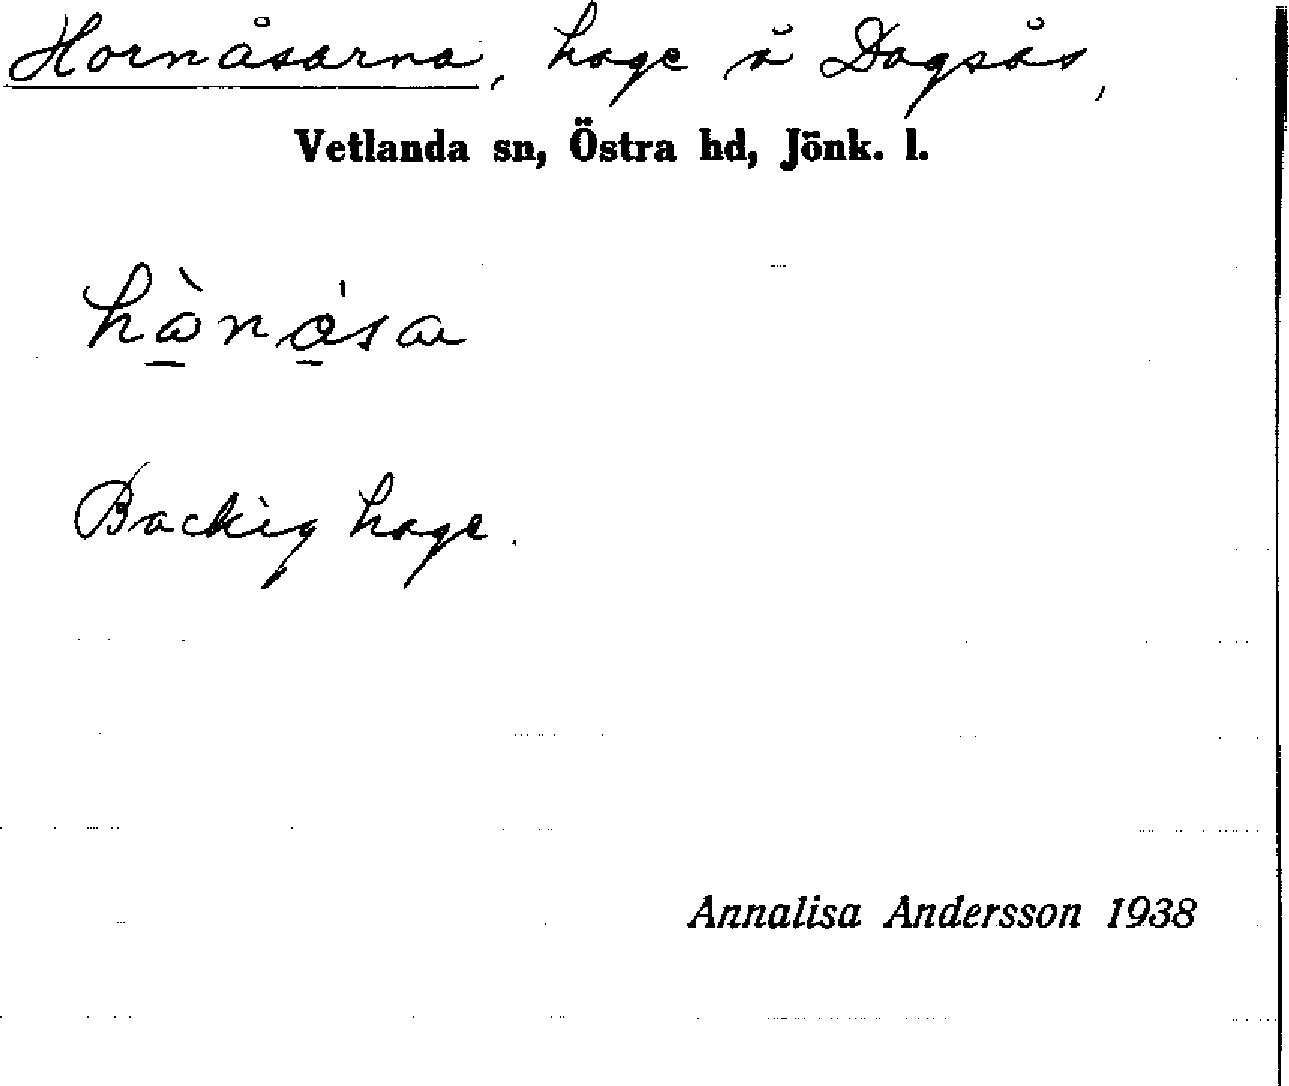 Hornåsarna, hage å Dagsås,
Vetlanda sn, Östra hd, Jönk. l.
hànása
Backig hage.
Annalisa Andersson 1938